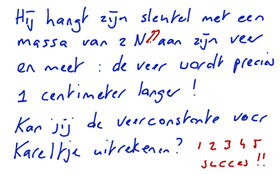 Hij hangt zijn sleutel met een
massa van 2 N aan zijn veer
en meet : de veer wordt precies
1 centimeter langer !
Kan jij de veerconstante voor
Kareltje uitrekenen ? 1 2 3 4 5
succes !!